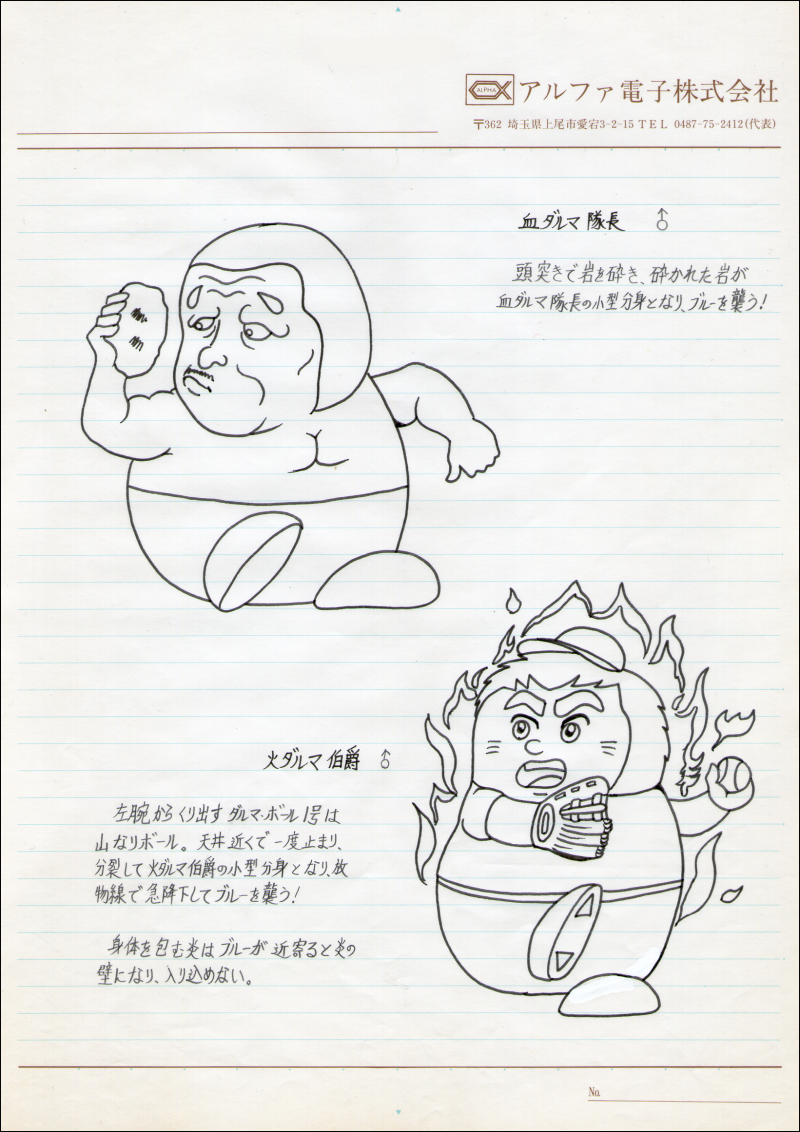 ALPHA アルファ電子株式会社
〒362 埼玉県上尾市愛宕3-2-15 TEL 0487-75-2412(代表)
血ダルマ隊長 ♂
頭突きで岩を砕き、砕かれた岩が
血ダルマ隊長の小型分身となり、ブルーを襲う!
火ダルマ伯爵 ♂
左腕からくり出すダルマ・ボール1号は
山なりボール。天井近くで一度止まり、
分裂して火ダルマ伯爵の小型分身となり、放
物線で急降下してブルーを襲う!
身体を包む炎はブルーが近寄ると炎の
壁になり、入り込めない。
No.